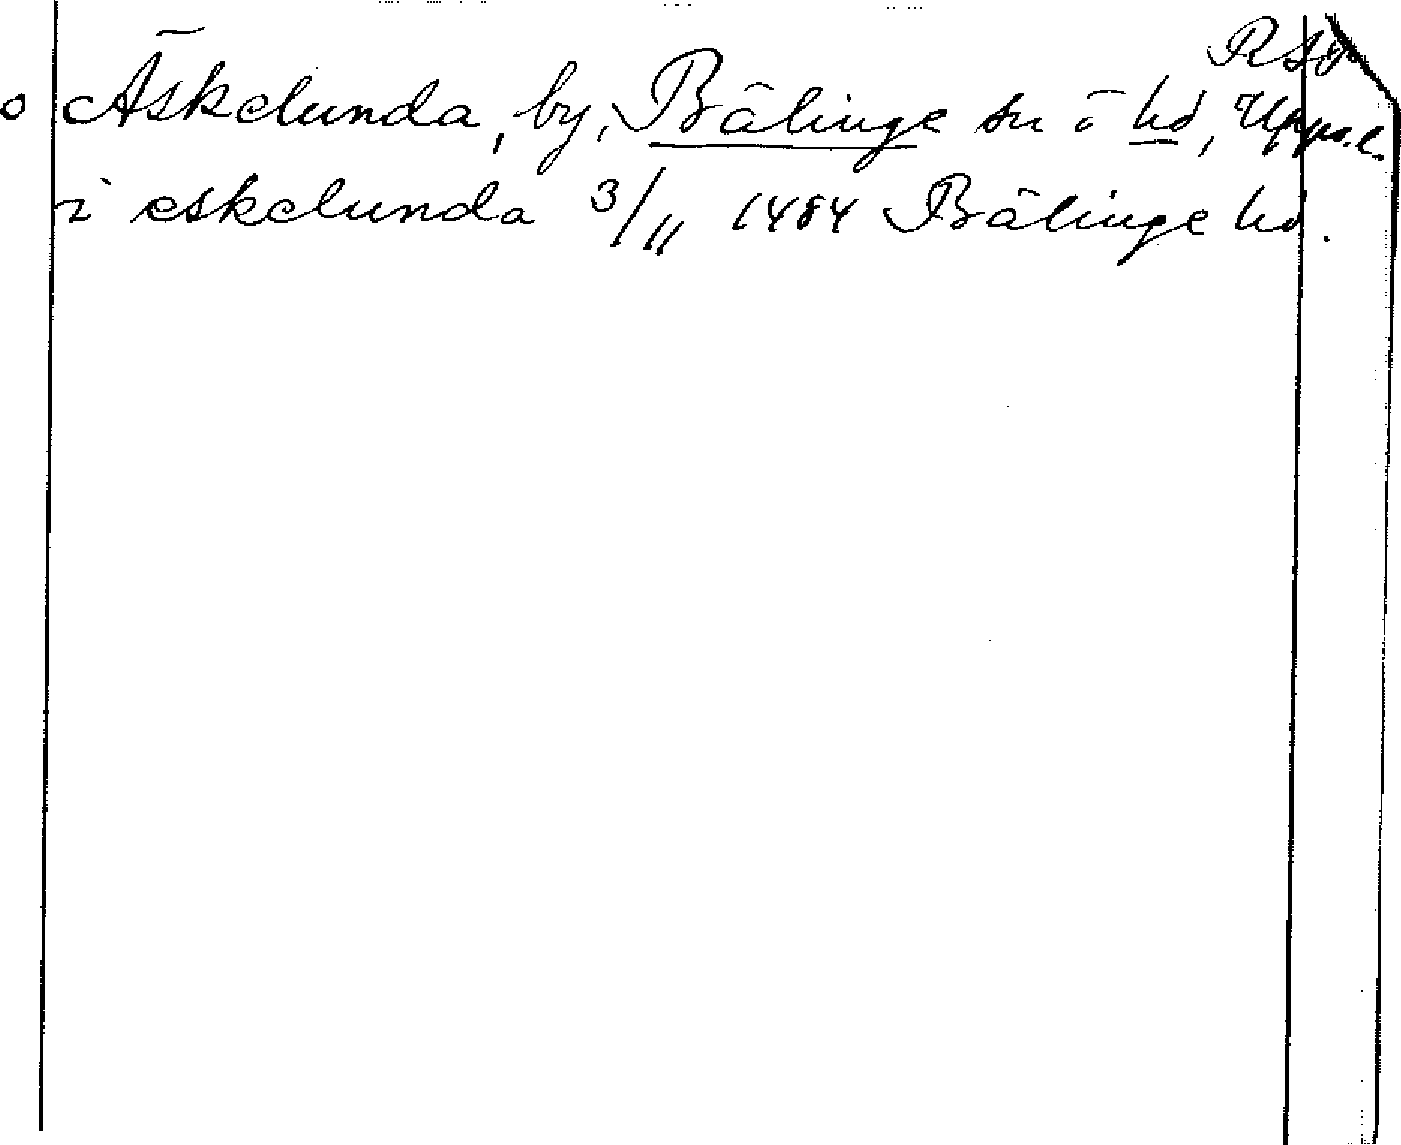 RSO
o Äskelunda, by, Bälinge sn o hd, Upps. l.
i eskelunda 3/11 1484 Bälinge hd.